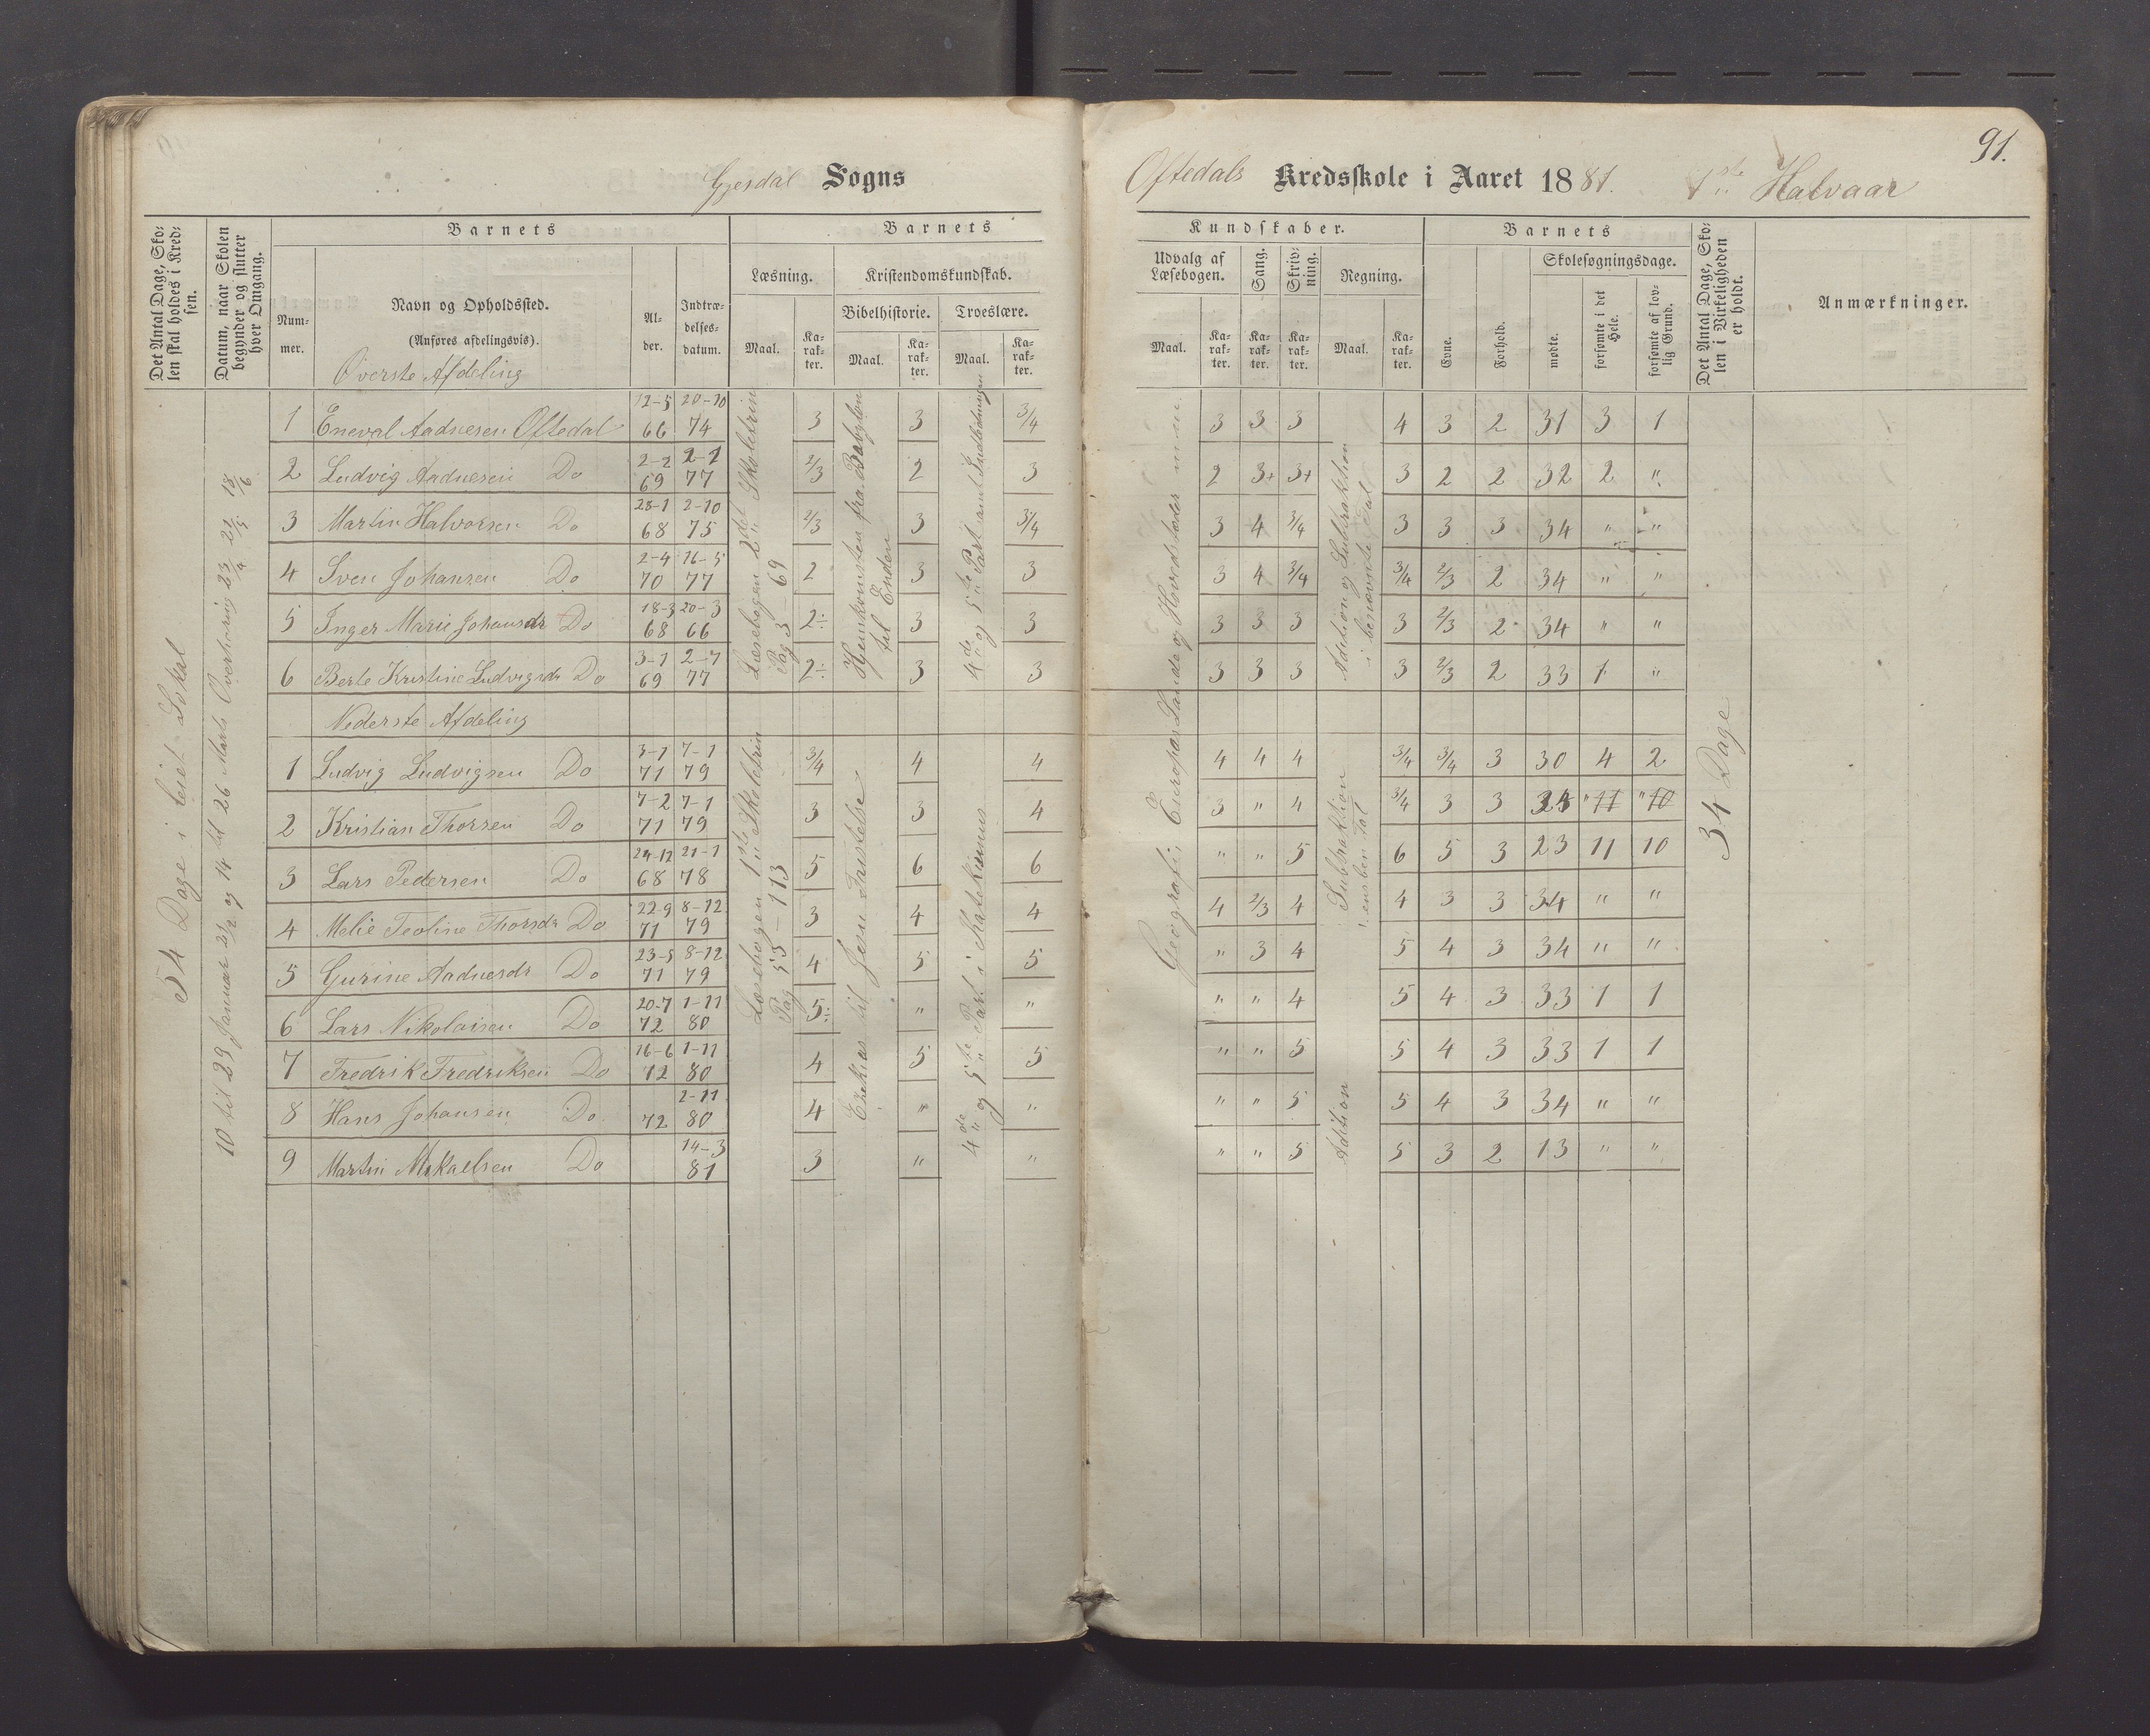 91.
Gjesdal Sogns
Oftedals Kredsskole i Aaret 1881. 1ste Halvaar
Det Antal Dage, Skolen skal holdes i Kredsen.
Datum, naar Skolen begynder og slutter hver Omgang.
Barnets
Nummer.
Navn og Opholdssted.
(Anføres afdelingsvis).
Alder.
Indtrædelsesdatum.
Barnets
Læsning.
Maal.
Karakter.
Kristendomskundskab.
Bibelhistorie.
Maal.
Karakter.
Troeslære.
Maal.
Karakter.
Kundskaber.
Udvalg af Læsebogen.
Maal.
Karakter.
Sang.
Karakter.
Skrivning.
Karakter.
Regning.
Maal.
Karakter.
Barnets
Evne.
Forhold.
Skolesøgningsdage.
mødte.
forsømte i det Hele.
forsømte af lovlig Grund.
Det Antal Dage, Skolen i Virkeligheden er holdt.
Anmærkninger.
54 Dage i leiet Lokal
10 til 29 Januar 21/2 og 14 til 26 Marts Overhøring 23/4 21/5 18/6
Øverste Afdeling
1 Eneval Aadnesen Oftedal 12-5 66 20-10 74 3 3 3/4 3 3 3 4 3 2 31 3 1
2 Ludvig Aadnesen Do 2-2 69 2-1 77 2/3 2 3 2 3+ 3+ 3 2 2 32 2 "
3 Martin Halvorsen Do 28-1 68 2-10 75 2/3 3 3/4 3 4 3/4 3 3 3 34 " "
4 Sven Johansen Do 2-4 70 16-5 77 2 3 3 3 4 3/4 3/4 2/3 2 34 " "
5 Inger Marie Johansdr Do 18-3 68 20-3 66 2÷ 3 3 3 3 3 3 2/3 2 34 " "
6 Berte Kristine Ludvigsdr Do 3-1 69 2-7 77 2÷ 3 3 3 3 3 3 2/3 2 33 1 "
Læsebogen 2det Skoletrin
Pag 3 – 69
Hjemkomsten fra Babylon
til Enden
4de og 5te Part samt Indledningen
Geografi, Europas Lande og Hovedstæder
Adition og Subtraktion
i benævnte Tal
Nederste Afdeling
1 Ludvig Ludvigsen Do 3-1 71 7-1 79 3/4 4 4 4 4 4 3/4 3/4 3 30 4 2
2 Kristian Thorsen Do 7-2 71 7-1 79 3 3 4 3 " 4 3/4 3 3 34 " 11 " 10
3 Lars Pedersen Do 24-12 68 21-1 78 5 6 6 " " 5 6 5 3 23 11 10
4 Melie Teoline Thorsdr Do 22-9 71 8-12 79 3 4 4 4 2/3 4 4 3 3 34 " "
5 Gurine Aadnesdr Do 23-5 71 8-12 79 4 5 5 " 3 4 5 4 3 34 " "
6 Lars Nikolaisen Do 20-7 72 1-11 80 5÷ " " " " 4 5 4 3 33 1 1
7 Fredrik Fredriksen Do 16-6 72 1-11 80 4 5 5 " " 5 5 4 3 33 1 1
8 Hans Johansen Do 72 2-11 80 4 " " " " 5 5 4 3 34 " "
9 Martin Mikaelsen Do 14-3 81 3 " " " " 5 5 3 2 13 " "
Læsebogen 1ste Skoletrin
Pag 55 – 113
Ezekias til Jesu Fristelse
4de og 5te Part i Katekismus
Subtraktion
i ensben Tal
Adition
34 Dage